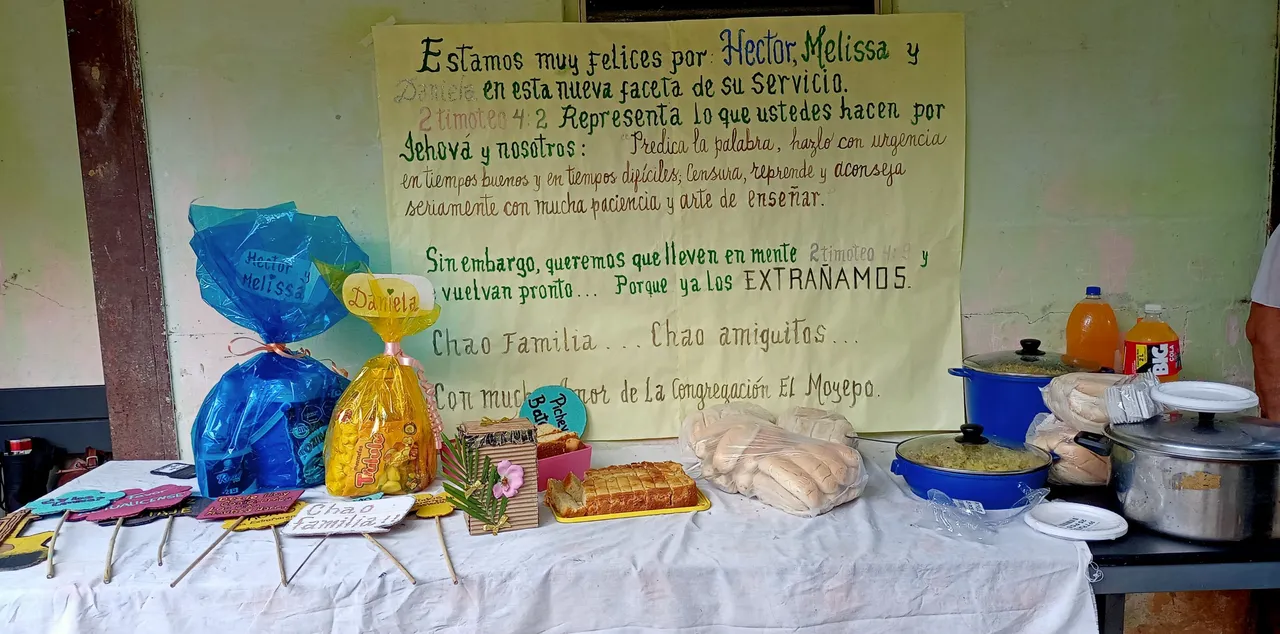 Estamos muy felices por: Hector, Melissa y
Daniela en esta nueva faceta de su servicio.
2 timoteo 4:2 Representa lo que ustedes hacen por
Jehová y nosotros: "Predica la palabra, hazlo con urgencia
en tiempos buenos y en tiempos difíciles; censura, reprende y aconseja
seriamente con mucha paciencia y arte de enseñar.
Sin embargo, queremos que lleven en mente 2 timoteo 4:9 y
vuelvan pronto... Porque ya los EXTRAÑAMOS.
Chao Familia... Chao amiguitos...
Con mucho Amor de La Congregación El Moyepo.
Hector y
Melissa
Daniela
Chao
familia!!
BIG
COLA